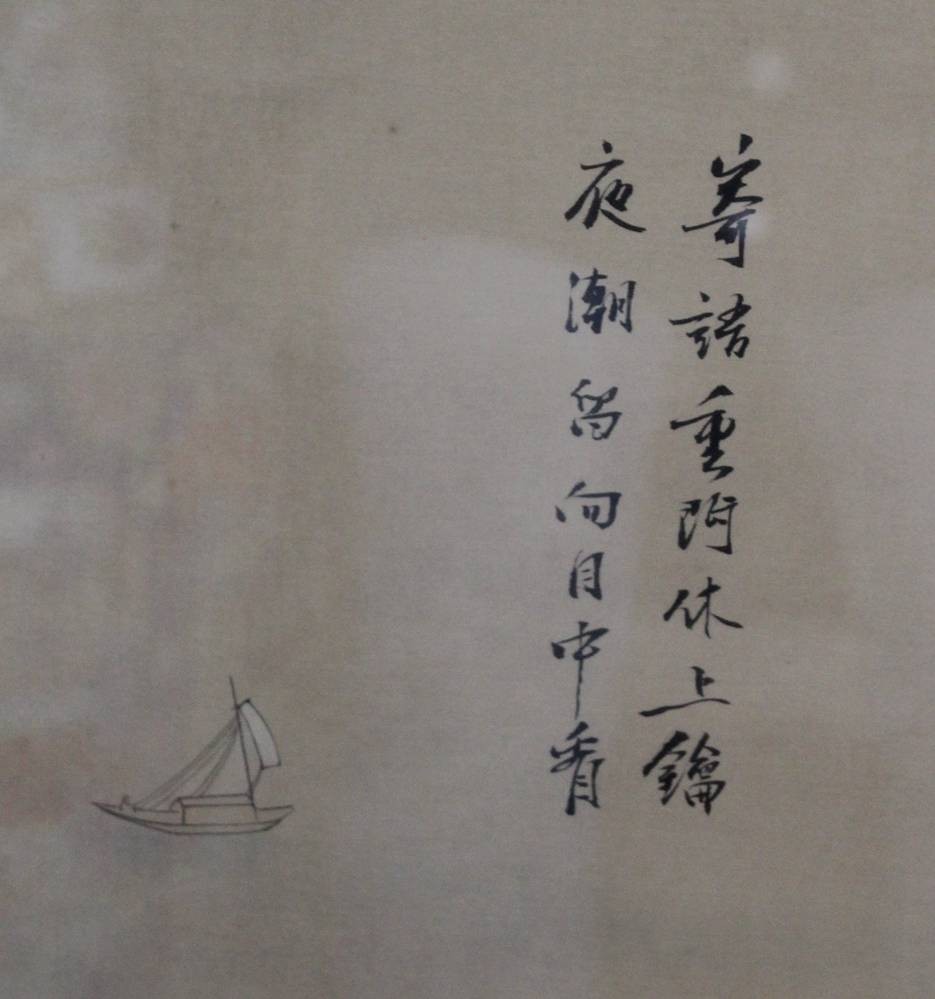 寄語重門休上鑰
夜潮留向月中看